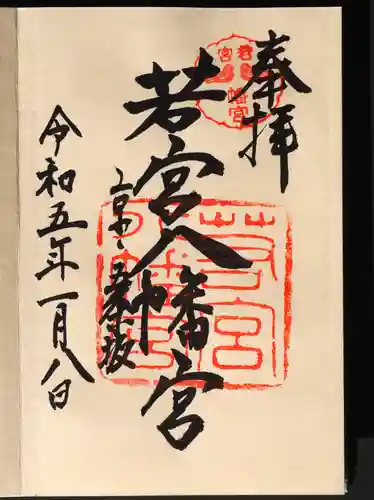 奉拝
若宮八幡宮
京都・五条坂
令和五年一月八日
若宮
八幡宮